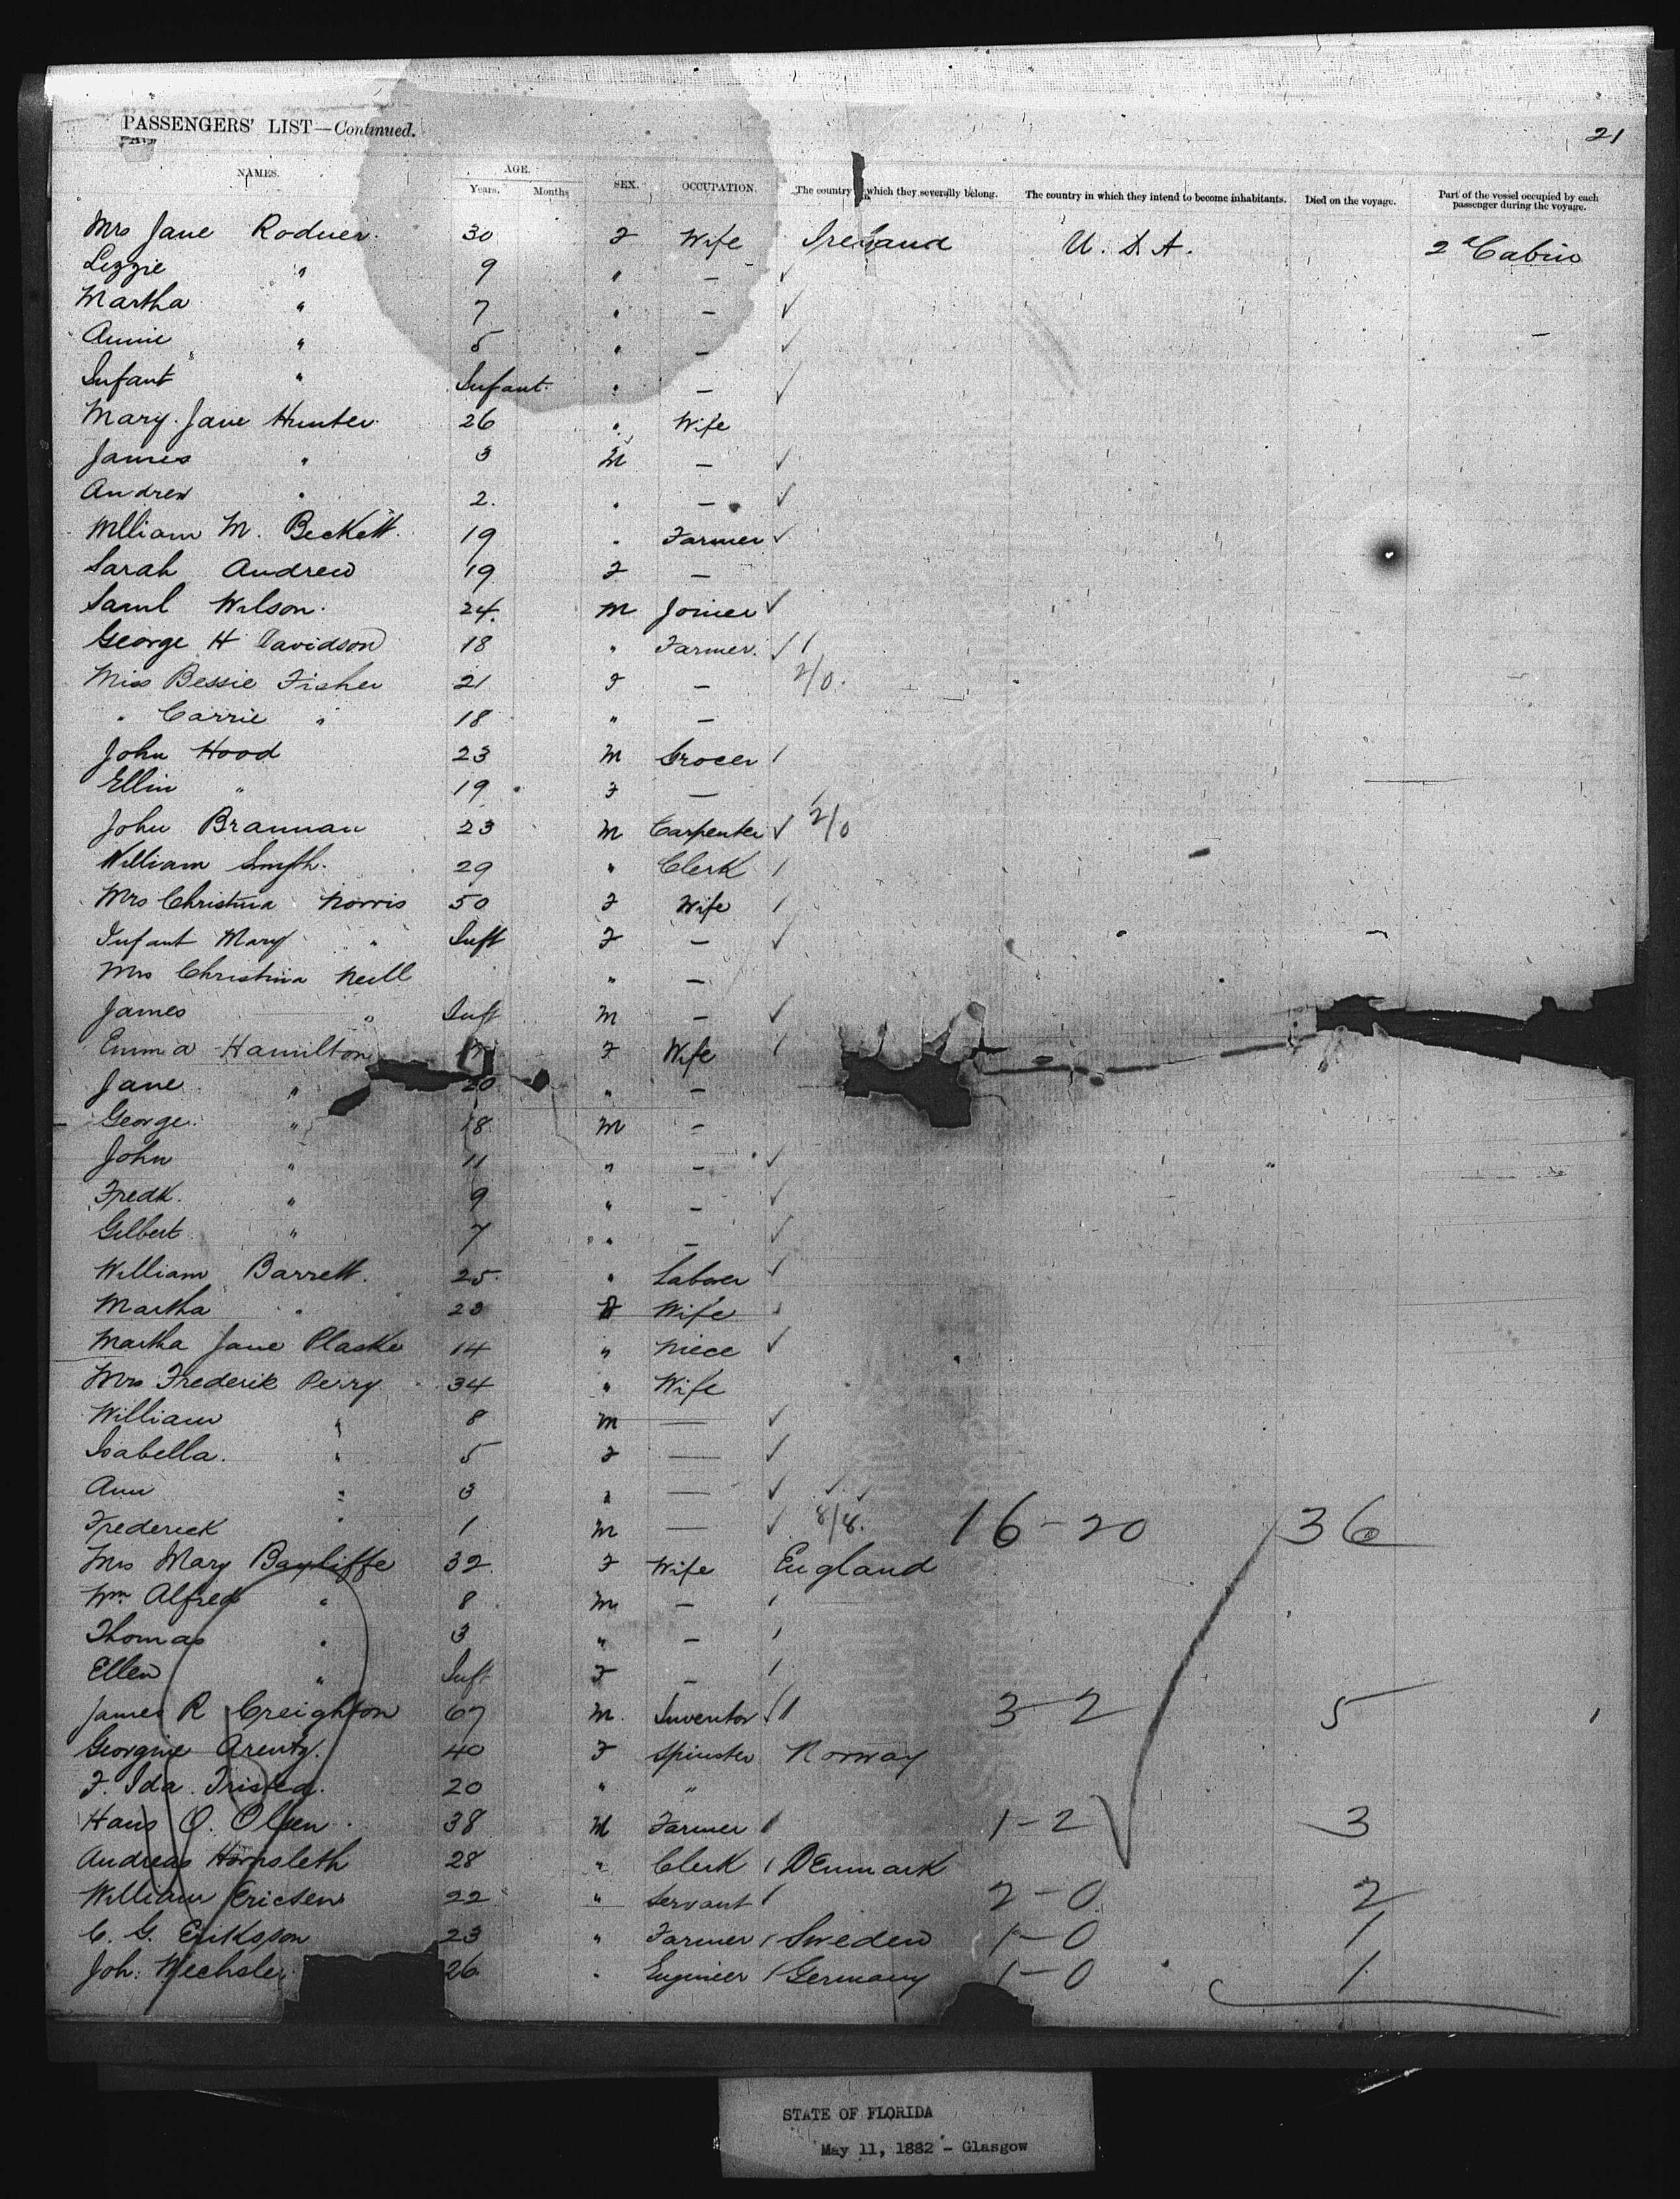 PASSENGERS' LIST—Continued.
21
NAMES. AGE. Years. Months SEX. OCCUPATION. The country in which they severally belong. The country in which they intend to become inhabitants. Died on the voyage. Part of the vessel occupied by each passenger during the voyage.
Mrs Jane Rodner. 30 F Wife Ireland U. S. A. 2d Cabin
Lizzie " 9 " – ✓
Martha " 7 " – ✓
Annie " 5 " – ✓ –
Infant " Infant " – ✓
Mary Jane Hunter 26 " Wife
James " 3 M – ✓
Andrew " 2. " – ✓
William M. Beckett. 19 " Farmer ✓
Sarah Andrew 19 F –
Saml Wilson. 24. M Joiner ✓
George H Davidson 18 " Farmer. ✓ 1
Miss Bessie Fisher 21 F – 2/0.
" Carrie " 18 " –
John Hood 23 M Grocer /
Ellin " 19 F –
John Brannan 23 M Carpenter ✓ 2/0
William Smyth. 29 " Clerk /
Mrs Christina Norris 50 F Wife /
Infant Mary " Inft F – ✓
Mrs Christina Neill " –
James " Inft M – ✓
Emma Hamilton F Wife /
Jane " 20 " –
George " 18 M –
John " 11 " – ✓
Fredk. " 9 " – ✓
Gilbert " 7 " – ✓
William Barrett. 25. " Labour ✓
Martha " 23 F Wife ✓
Martha Jane Plaske 14 " Niece ✓
Mrs Frederik Perry 34 " Wife
William " 8 M — ✓
Isabella. " 5 F — ✓
Ann " 3 " — ✓
Frederick " 1 M — ✓ 8/8. 16-20 36
Mrs Mary Bayliffe 32 F Wife England
Wm Alfred " 8 M – /
Thomas " 3 " – /
Ellen " Inft F – /
James R Creighton 67 M. Inventor 3-2 5
Georgine Arentz. 40 F Spinster Norway
F. Ida 20 " "
Hans O. Olsen 38 M Farmer / 1-2 3
Andreas Hornsleth 28 " Clerk / Denmark
William Ericsen 22 " Servant / 2-0 2
C. G. Eriksson 23 " Farmer / Sweden 1-0 1
Joh. Wechsler 26 " Engineer / Germany 1-0 1
STATE OF FLORIDA
May 11, 1882 - Glasgow